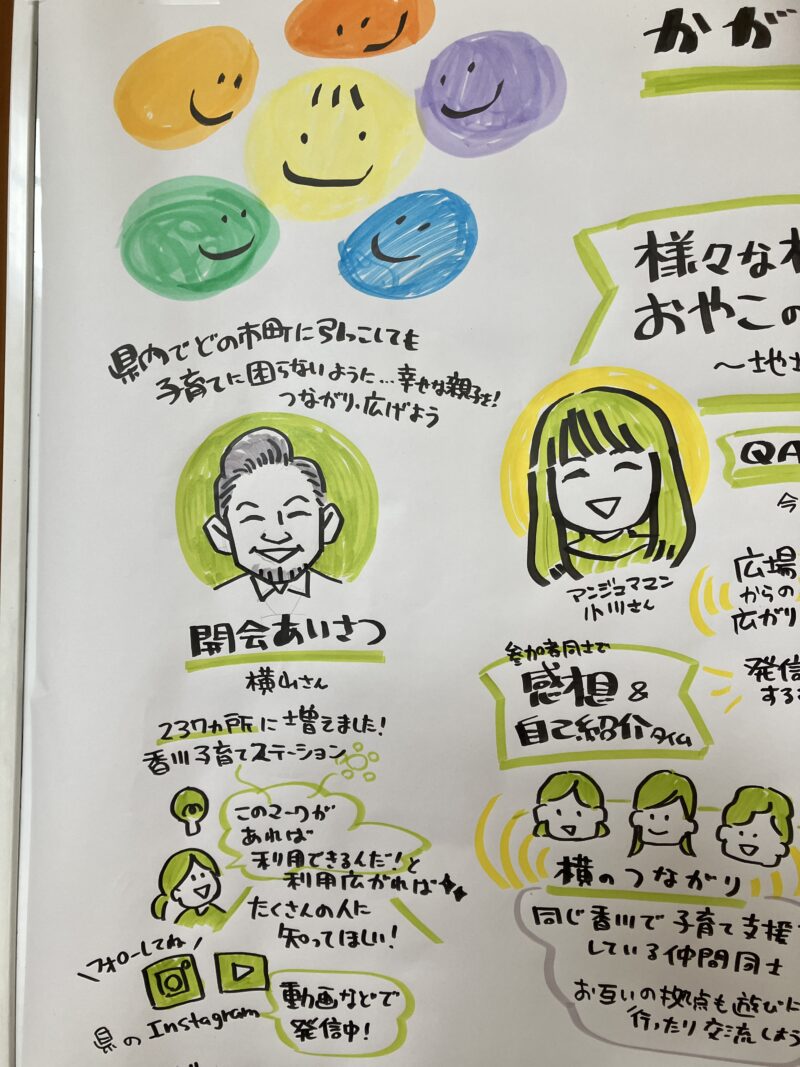 かが
様々な
おやこの
〜地
県内でどの市町に引っこしても
子育てに困らないように…幸せな親子を!
つながり・広げよう
開会あいさつ
横山さん
237カ所に増えました!
香川子育てステーション
このマークが
あれば
利用できるんだ!と
利用広がれば
たくさんの人に
知ってほしい!
\フォローしてね/
県のInstagram
動画などで
発信中!
アンジュママン
小川さん
参加者同士で
感想&
自己紹介タイム
横のつながり
同じ香川で子育て支援
している仲間同士
お互いの拠点も遊びに
行ったり交流しよう
QA
今
広場
からの
広がり
発信
する